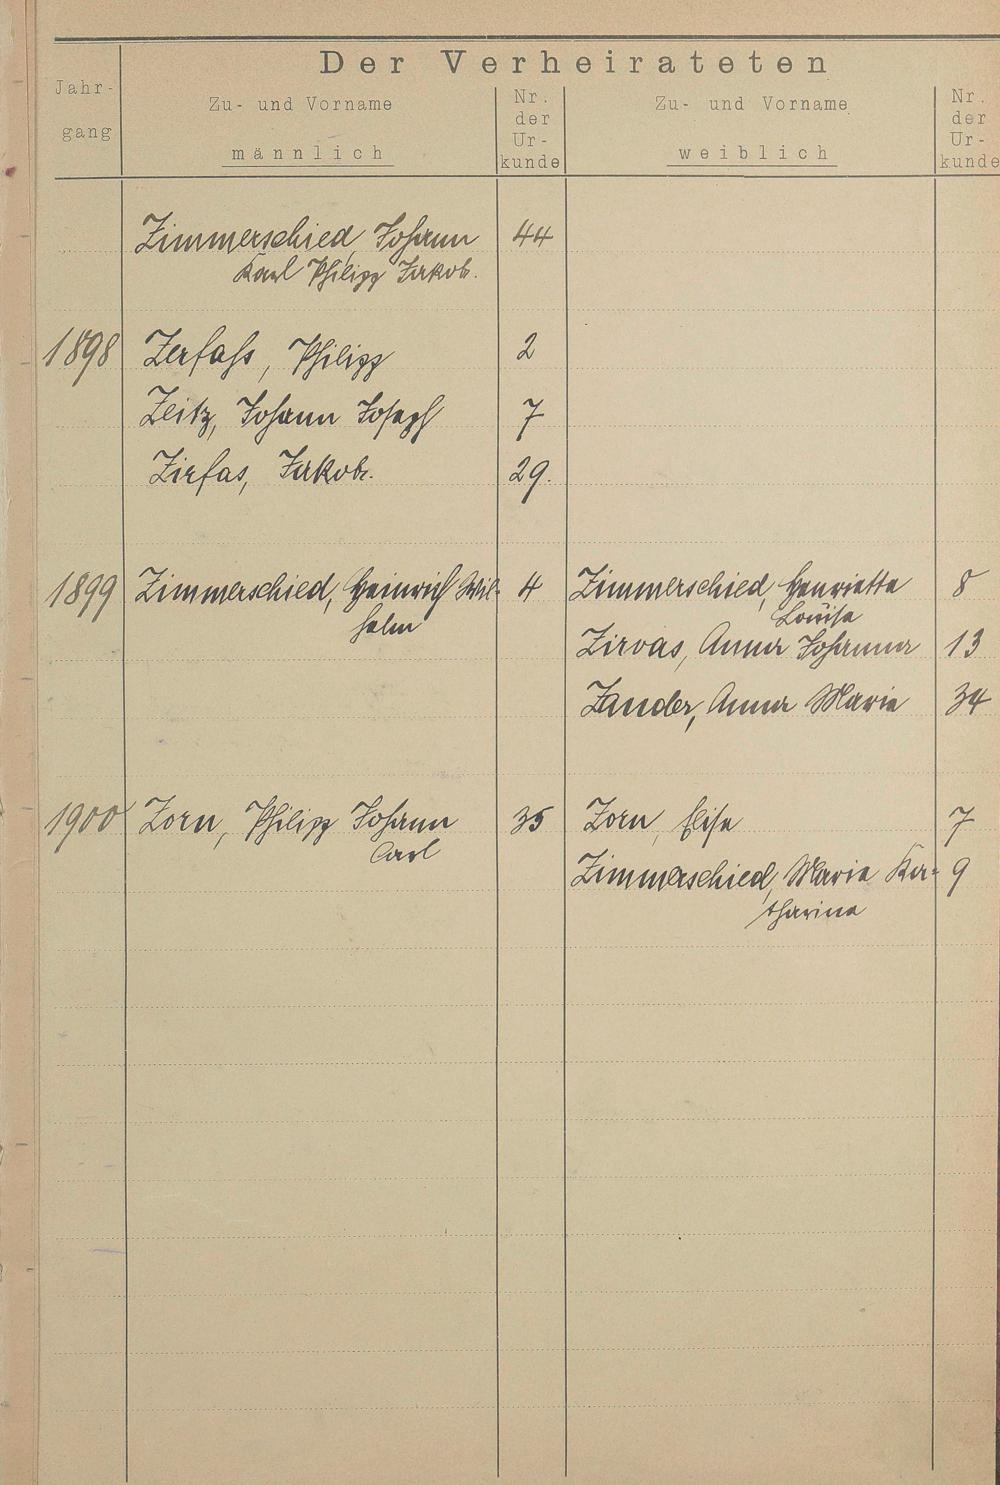 Der Verheirateten
Jahr-
gang
Zu- und Vorname
männlich
Nr.
der
Ur-
kunde
Zu- und Vorname
weiblich
Nr.
der
Ur-
kunde
Zimmerschied, Johann 44
Karl Philipp Jakob.
1898 Zerfaß, Philipp 2
Zeitz, Johann Joseph 7
Zirfas, Jakob. 29.
1899 Zimmerschied, Heinrich Wil- 4 Zimmerschied, Henriette 8
helm Louise
Zirvas, Anna Johanna 13
Zander, Anna Maria 34
1900 Zorn, Philipp Johann 35 Zorn, Elise 7
Carl
Zimmerschied, Maria Ka- 9
tharina